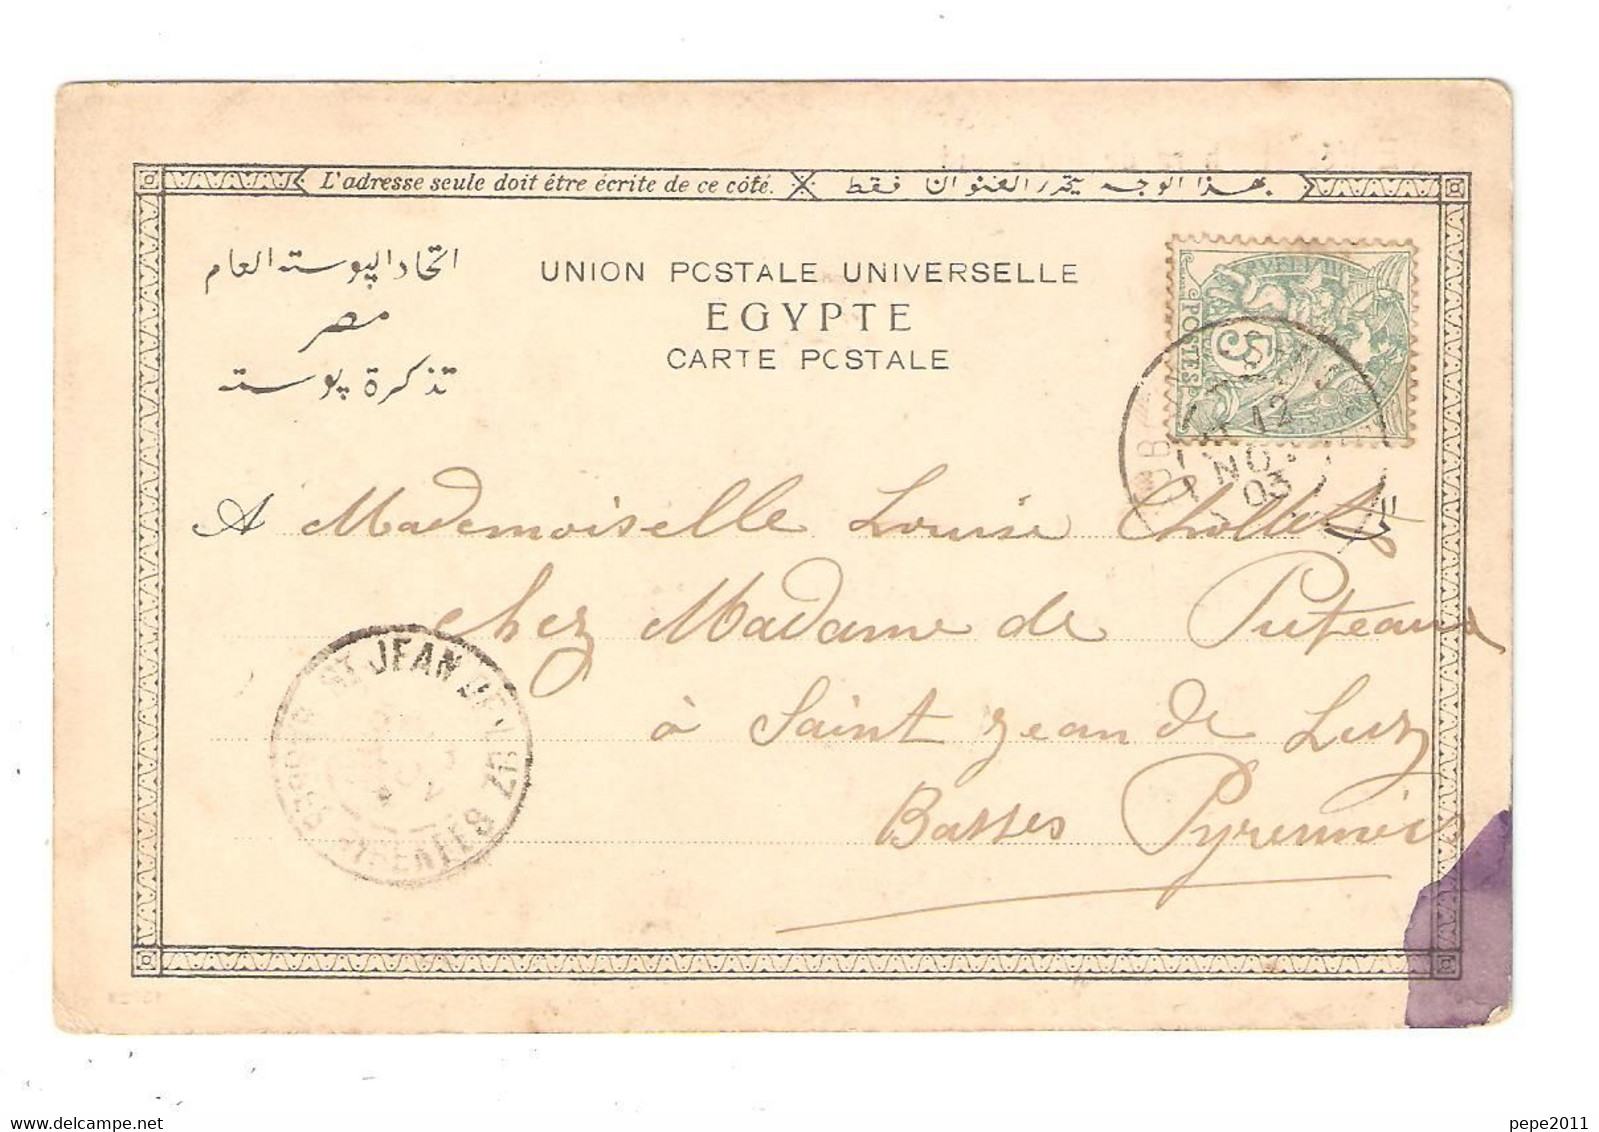 L'adresse seule doit être écrite de ce côté. بهذا الوجه يتحرر العنوان فقط
اتحاد البوسته العام
مصر
تذكرة بوسته
UNION POSTALE UNIVERSELLE
EGYPTE
CARTE POSTALE
POSTES
5
12
NO
03
A Mademoiselle Louise Chollet
chez Madame de Puteaux
à Saint Jean de Luz
Basses Pyrennées
ST JEAN DE LUZ
BASSES PYRENEES
pepe2011